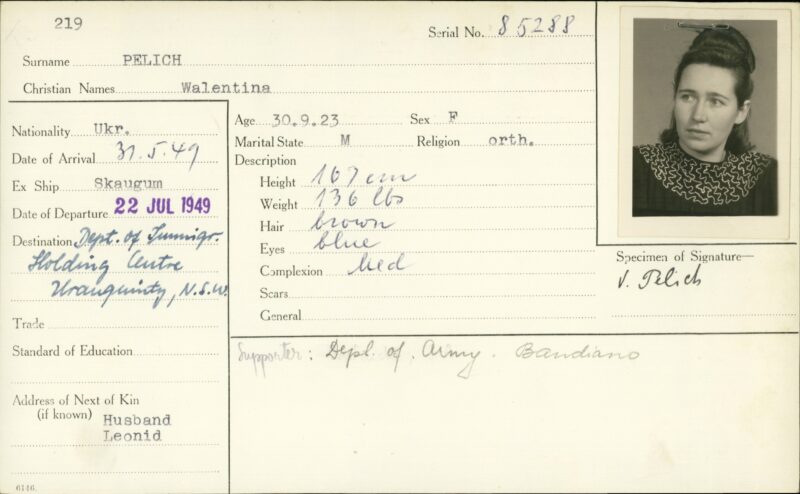 219
Serial No. 85288
Surname PELICH
Christian Names Walentina
Nationality Ukr.
Date of Arrival 31.5.49
Ex Ship Skaugum
Date of Departure 22 JUL 1949
Destination Dept. of Immigr.
Holding Centre
Uranquinty, N.S.W.
Trade
Standard of Education
Address of Next of Kin
(if known) Husband
Leonid
6146.
Age 30.9.23 Sex F
Marital State M Religion orth.
Description
Height 167 cm
Weight 136 lbs
Hair brown
Eyes blue
Complexion Med
Scars
General
Specimen of Signature—
V. Pelich
Supporter: Dept. of. Army. Bandiano